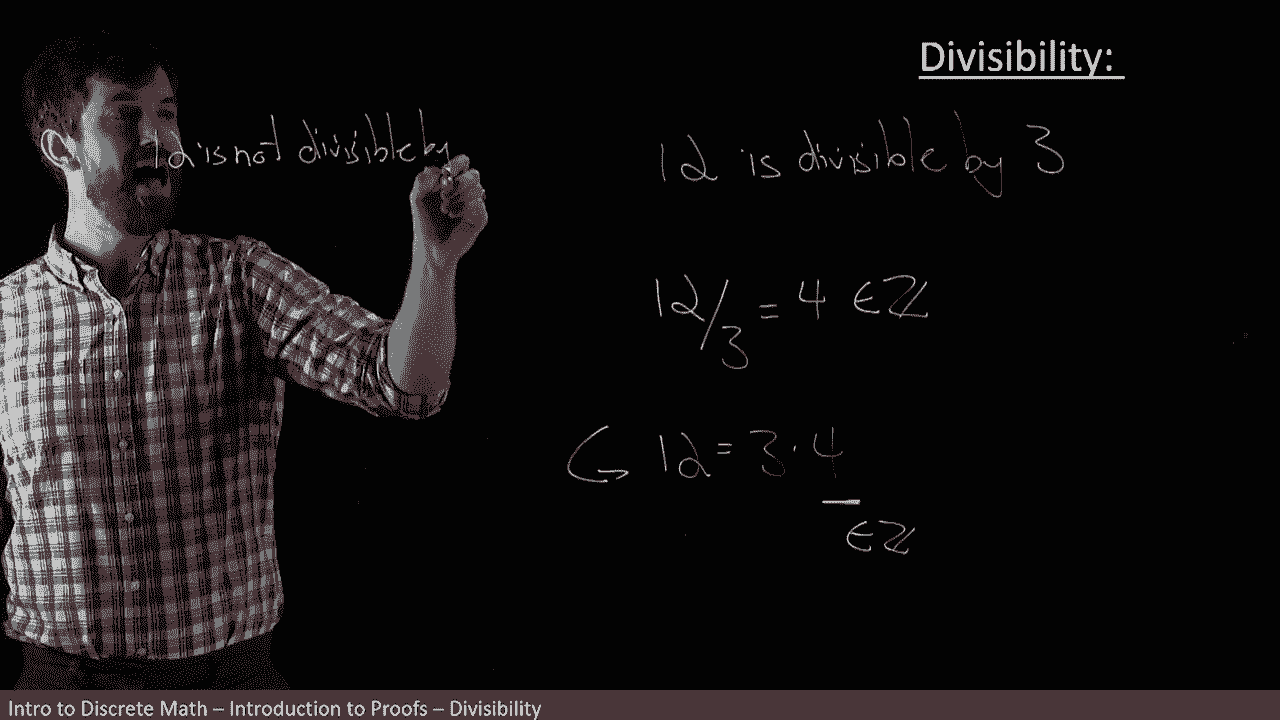 Divisibility:
12 is not divisible by
12 is divisible by 3
12/3 = 4 ∈ ℤ
12 = 3·4
∈ ℤ
Intro to Discrete Math – Introduction to Proofs – Divisibility